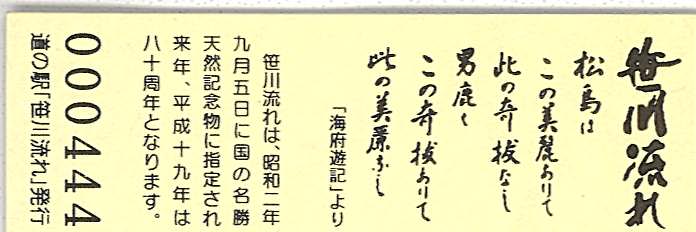 笹川流れ
松島は
この美麗ありて
此の奇拔なし
男鹿は
この奇拔ありて
此の美麗なし
「海府遊記」より
笹川流れは、昭和二年
九月五日に国の名勝
天然記念物に指定され
来年、平成十九年は
八十周年となります。
000444
道の駅「笹川流れ」発行